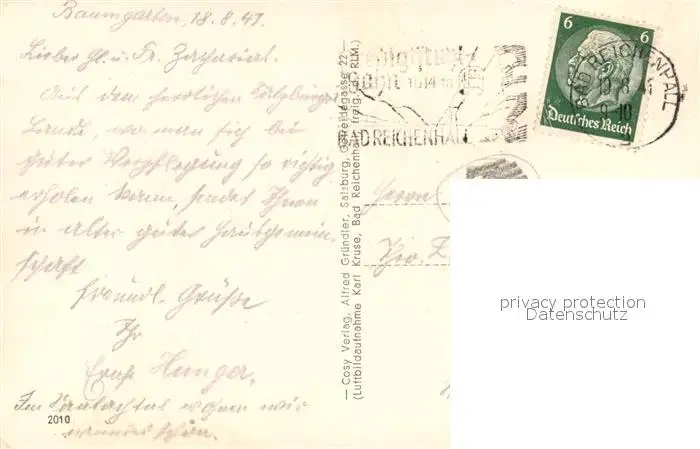 Baumgarten, 18.8.41.
Lieber Hl. u. Fr. Zacharias.
Aus dem herrlichen Salzburger
Lande, wo man sich bei
guter Verpflegung so richtig
erholen kann, sendet Ihnen
in alter guter Hausgemein-
schaft
freundl. Grüße
Ihr
Ernst Hunger.
Im wohnen wir
wunderschön.
2010
— Cosy Verlag, Alfred Gründler, Salzburg, Getreidegasse 22 —
(Luftbildaufnahme Karl Kruse, Bad Reichenhall, freig. d. RLM.)
BAD REICHENHALL
6 6
Deutsches Reich
BAD REICHENHALL
Herrn
privacy protection
Datenschutz